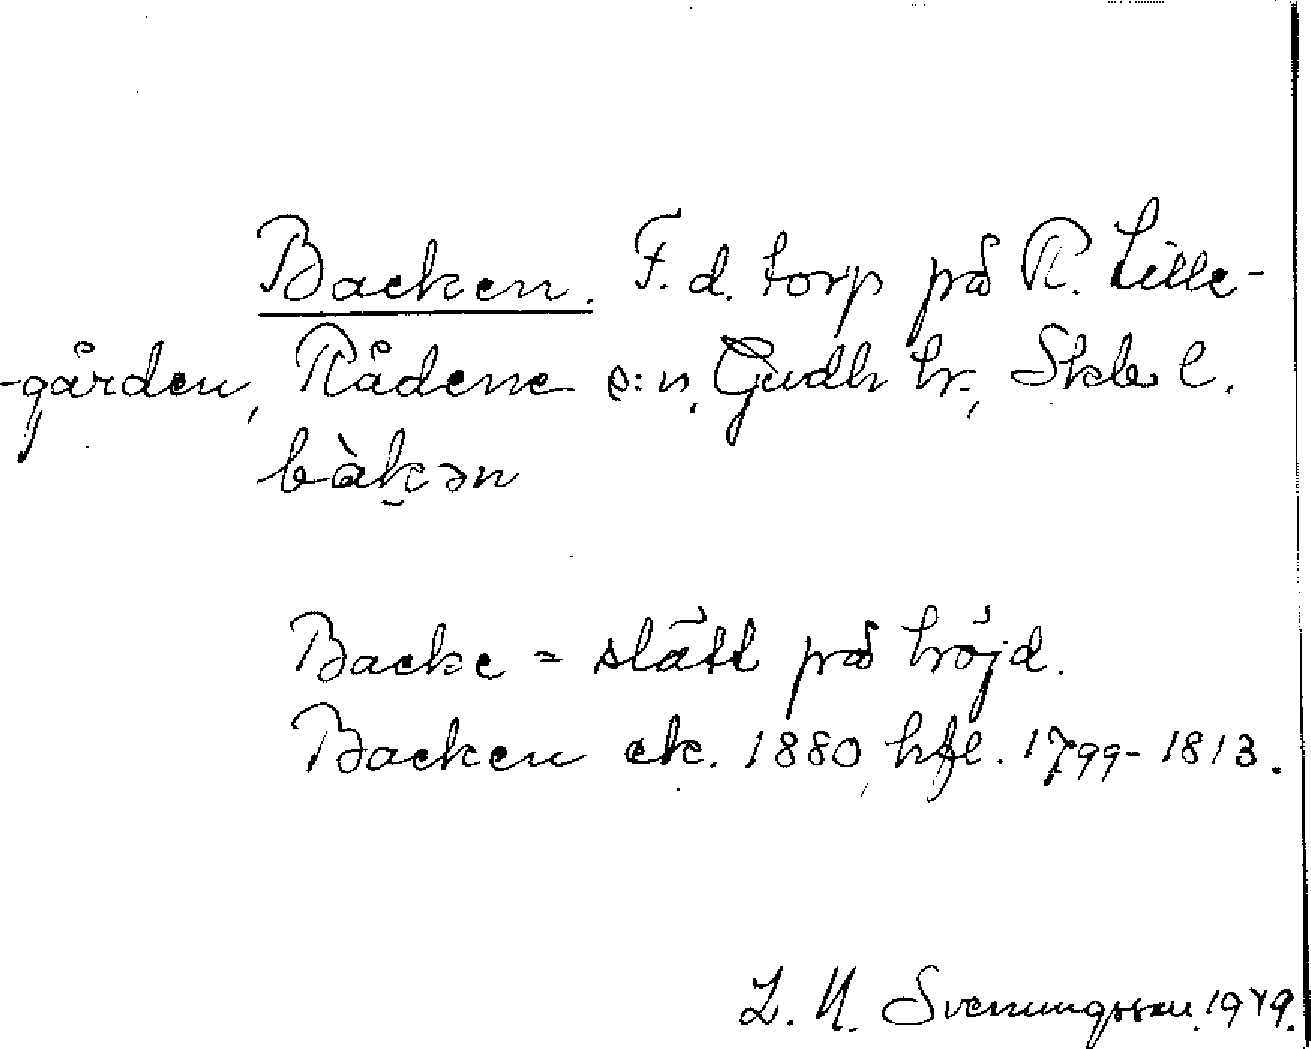 Backen. F.d. torp på R. Lille-
-gården, Rådene s:n, Gudh hr., Skbs l.
bàk̯ən
Backe = slätt på höjd.
Backen ek. 1880, hfl. 1799-1813.
L. N. Svenungsson. 1949.